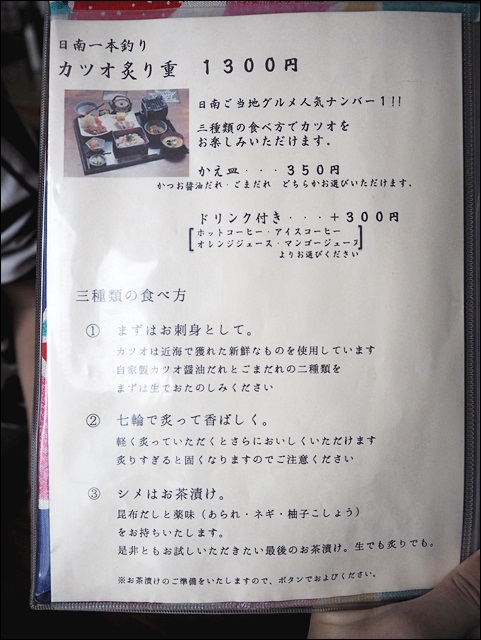 日南一本釣り
カツオ炙り重 1300円
日南ご当地グルメ人気ナンバー1!!
三種類の食べ方でカツオを
お楽しみいただけます。
かえ皿・・・350円
かつお醤油だれ・ごまだれ どちらかお選びいただけます。
ドリンク付き・・・+300円
[ホットコーヒー・アイスコーヒー
オレンジジュース・マンゴージュース]
よりお選びください
三種類の食べ方
① まずはお刺身として。
カツオは近海で獲れた新鮮なものを使用しています
自家製カツオ醤油だれとごまだれの二種類を
まずは生でおたのしみください
② 七輪で炙って香ばしく。
軽く炙っていただくとさらにおいしくいただけます
炙りすぎると固くなりますのでご注意ください
③ シメはお茶漬け。
昆布だしと薬味(あられ・ネギ・柚子こしょう)
をお持ちいたします。
是非ともお試しいただきたい最後のお茶漬け。生でも炙りでも。
※お茶漬けのご準備をいたしますので、ボタンでおよびください。